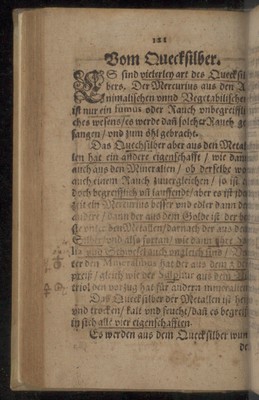 121
Vom Quecksilber.
ES sind vielerley art des Quecksil
bers. Der Mercurius aus den A
nimalischen vnnd Vegetabilischen
ist nur ein fumus oder Rauch vnbegreiffli
ches wesens/ es werde dañ solcher Rauch ge
fangen/ vnd zum öhl gebracht.
Das Quecksilber aber aus den Metal
len hat ein andere eigenschafft / wie dann
auch aus den Mineralien / ob derselbe wol
auch einem Rauch zuuergleichen / so ist er
doch begreifflich vñ lauffend/ aber es ist
ein Mercurius besser vnd edler dann der
andere / dann der aus dem Golde ist der
ste vnter den Metallen/ darnach der aus dem
Silber/ vnd also fortan/ wie dann
vnd Schwefel auch vngleich sind /
den Mineralibus hat der aus dem
preiß / gleich wie der aus dem
triol den vorzug hat für andern mineralien
Das Quecksilber der Metallen ist heiß
vnd trucken/ kalt vnd feucht/ dañ es begreifft
in sich alle vier eigenschafften.
Es werden aus dem Quecksilber wun
de